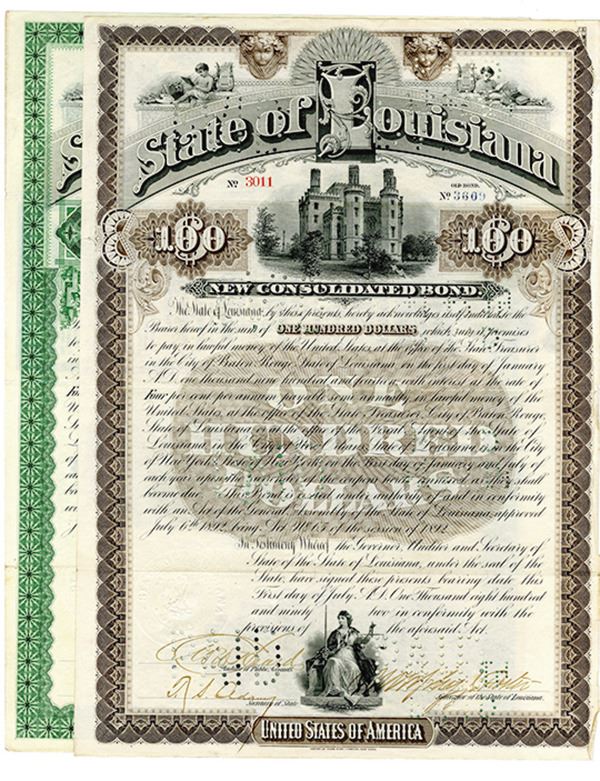 State of Louisiana
Nº 3011
OLD BOND.
Nº 3609
100 100
NEW CONSOLIDATED BOND.
The State of Louisiana, by these presents, hereby acknowledges itself indebted to the
Bearer hereof in the sum of ONE HUNDRED DOLLARS, which sum it promises
to pay in lawful money of the United States, at the office of the State Treasurer
in the City of Baton Rouge, State of Louisiana on the first day of January
A.D. one thousand nine hundred and fourteen with interest at the rate of
four per cent per annum payable semi annually in lawful money of the
United States, at the office of the State Treasurer, City of Baton Rouge,
State of Louisiana, or at the office of the Fiscal Agent of the State
of Louisiana, in the City of New Orleans, State of Louisiana, or in the City
of New York, State of New York, on the first day of January and July of
each year upon the presentation of the coupons hereto annexed as they shall
become due. This bond is issued under authority of and in conformity
with an Act of the General Assembly of the State of Louisiana, approved
July 6th 1892, being Act No. of the session of 1892.
ONE
HUNDRED
DOLLARS
In Testimony Whereof the Governor, Auditor and Secretary of
State of the State of Louisiana, under the seal of the
State, have signed these presents bearing date this
First day of July, A.D. One Thousand eight hundred
and ninety two in conformity with the
provisions of the aforesaid Act.
Auditor of Public Accounts
Secretary of State
Governor of the State of Louisiana.
UNITED STATES OF AMERICA